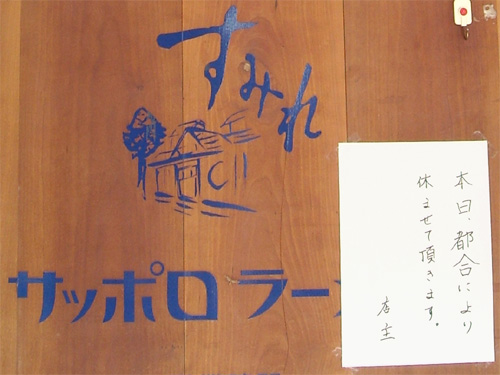 すみれ
サッポロ ラー
本日、都合により
休ませて頂きます。
店主